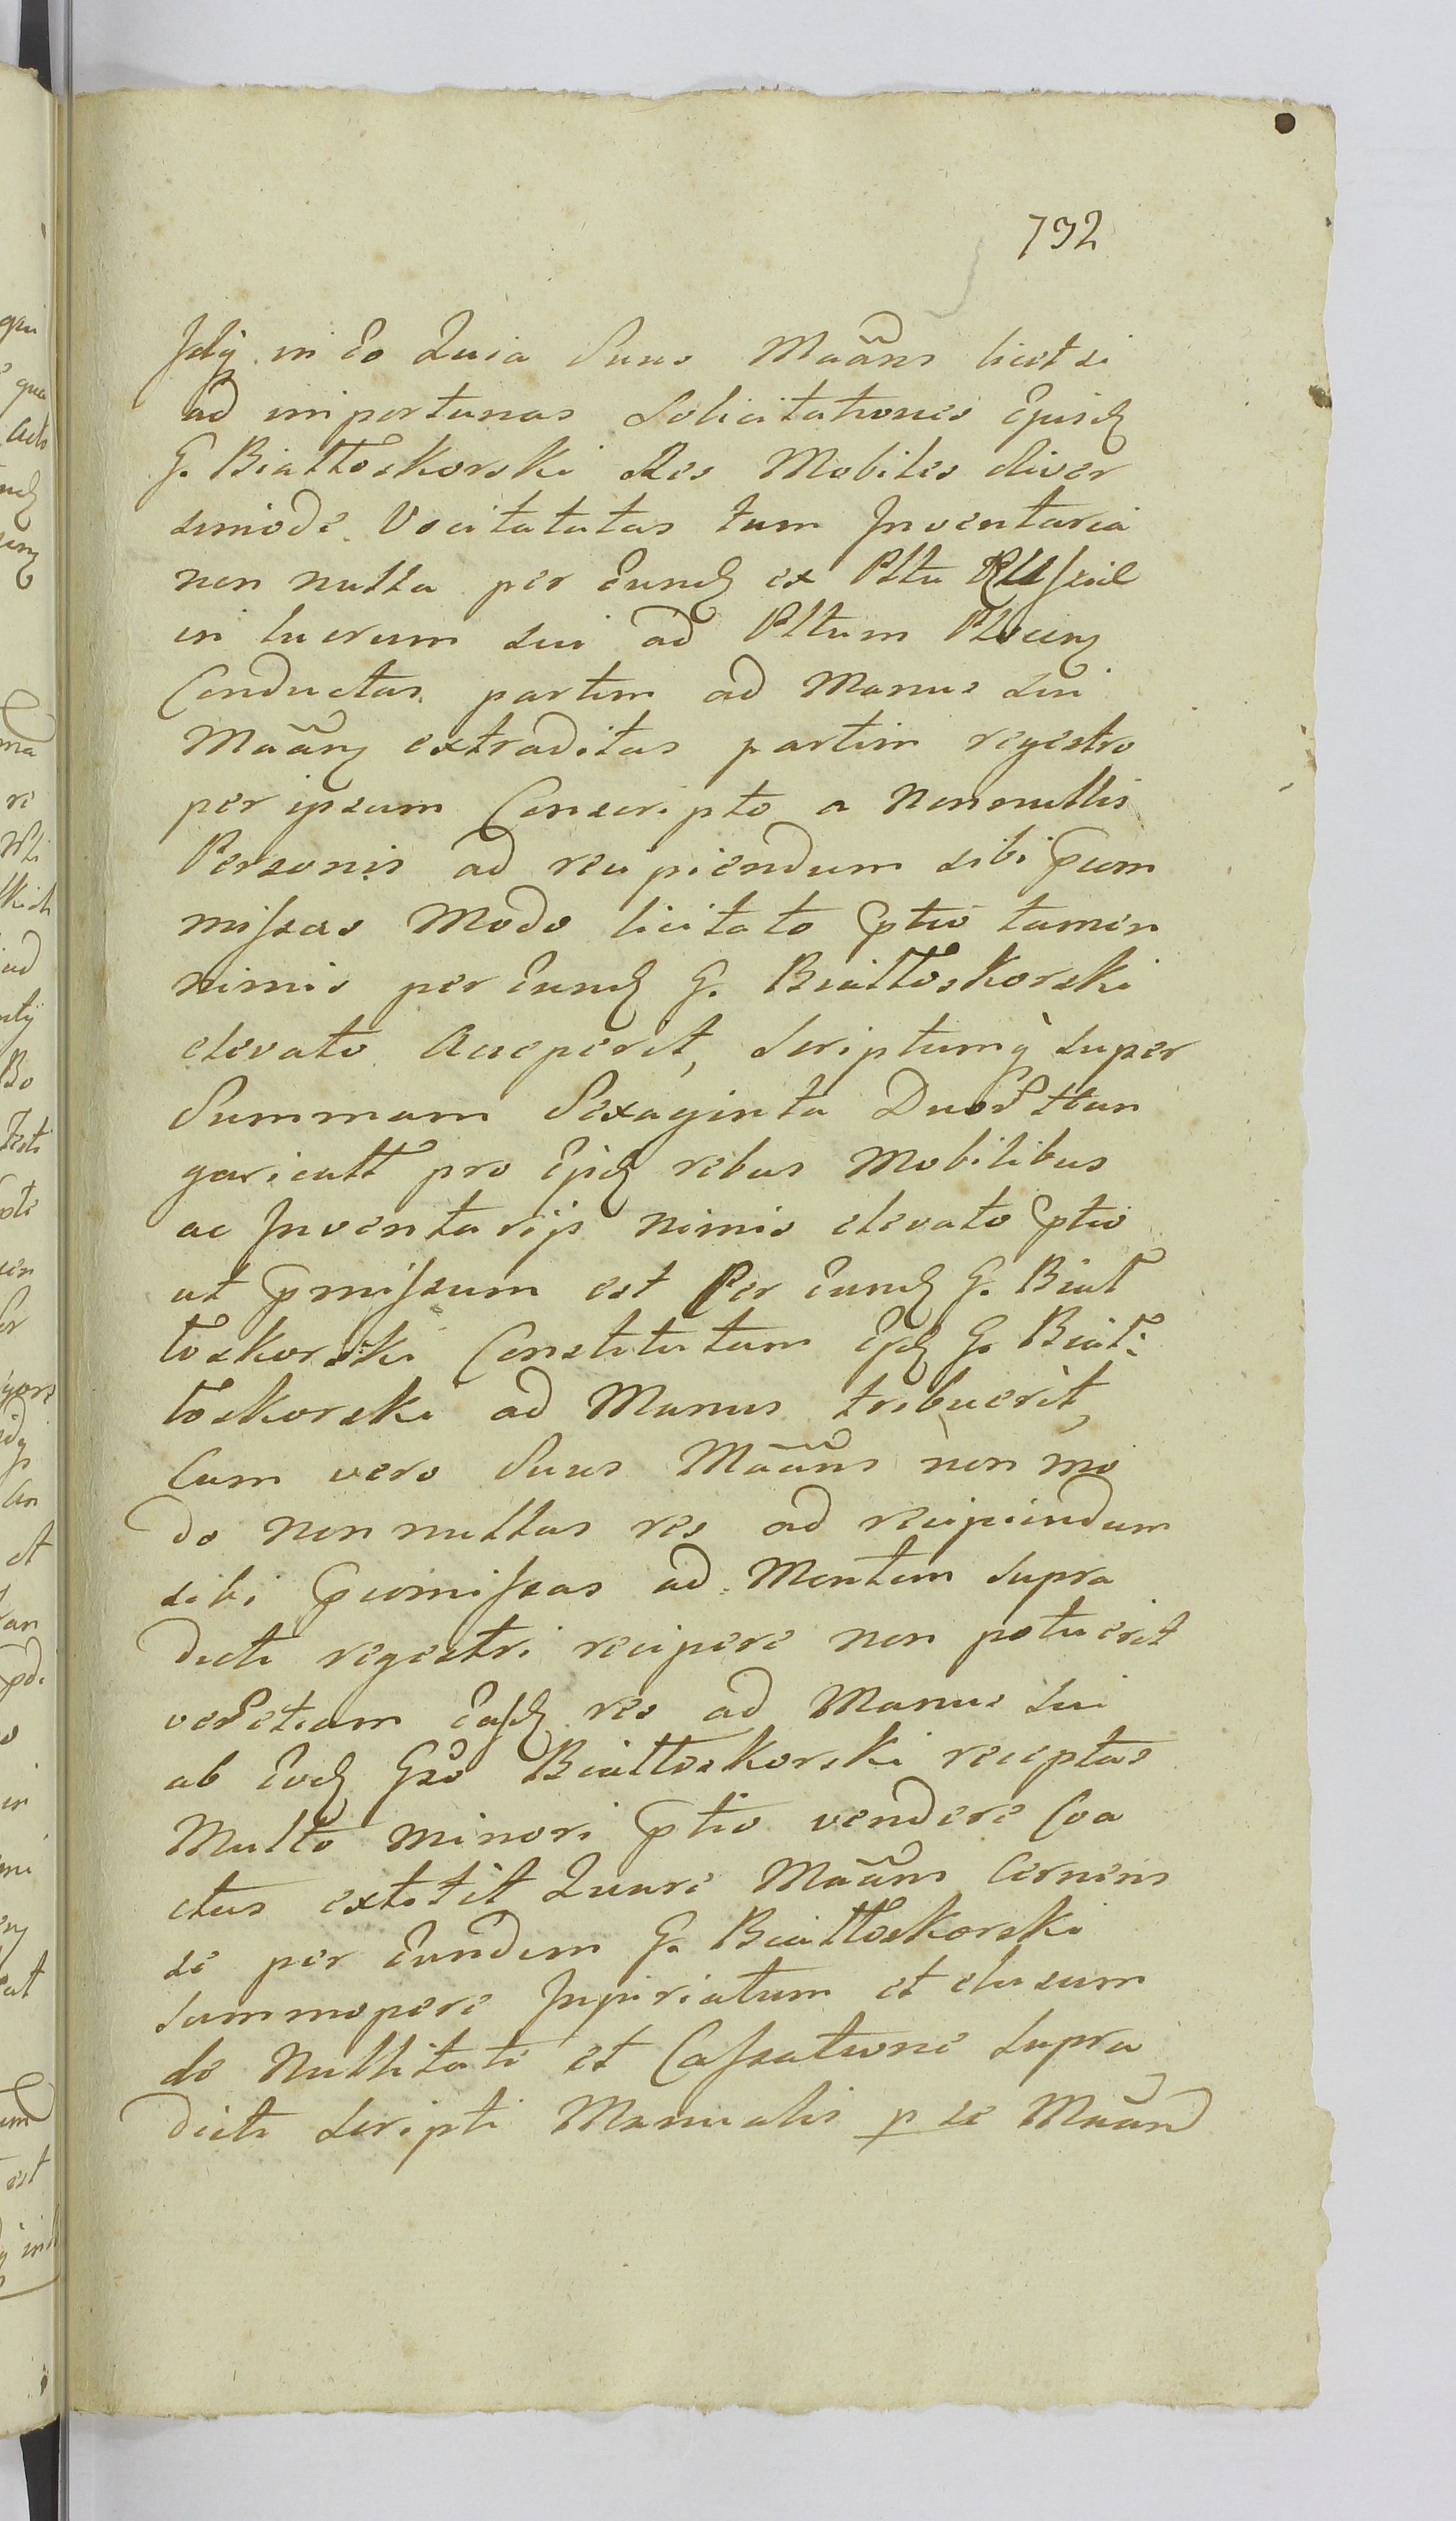 732
Idq in Eo Quia Suus Maãns licet si
ad importunas Solicitationes Ejusd
G. Białłoskorski Res Mobiles diver
simode Vocitatatas tum Inventaria
non nulla per Eund ex Pltu
in lucrum sui ad Pltum Plocen
Conductas partim ad Manus sui
Maãn extraditas partim regestro
per ipsum Conscripto a Nonnullis
Personis ad recipiendum sibi prom
missas Modo licitato ptio tamen
nimis per Eund G. Białłoskorski
elevato Acceperit, Scriptumq super
Summam Sexaginta Duor Hun
garicall pro Ejsd rebus Mobilibus
ac Inventarijs nimis elevato ptio
ut pmissum est Per Eund G. Biał
łoskorski Constitutum Ejd G. Biał:
łoskorski ad Manus tribuerit,
Cum vero Suus Maãns non mo
do non nullas res ad recipiendum
sibi promissas ad Mentem Supra
dicti regestri recipere non potuerit
ver etiam Easd res ad Manus sui
ab Eod Gso Białłoskorski receptas
Multo minori ptio vendere Coa
ctus extitit Quare Maãns Cernens
se per Eundem G. Białłoskorski
summopere Injuriatum et elusum
de Nullitate et Cassatione supra
dicti scripti Manualis p se Maãn